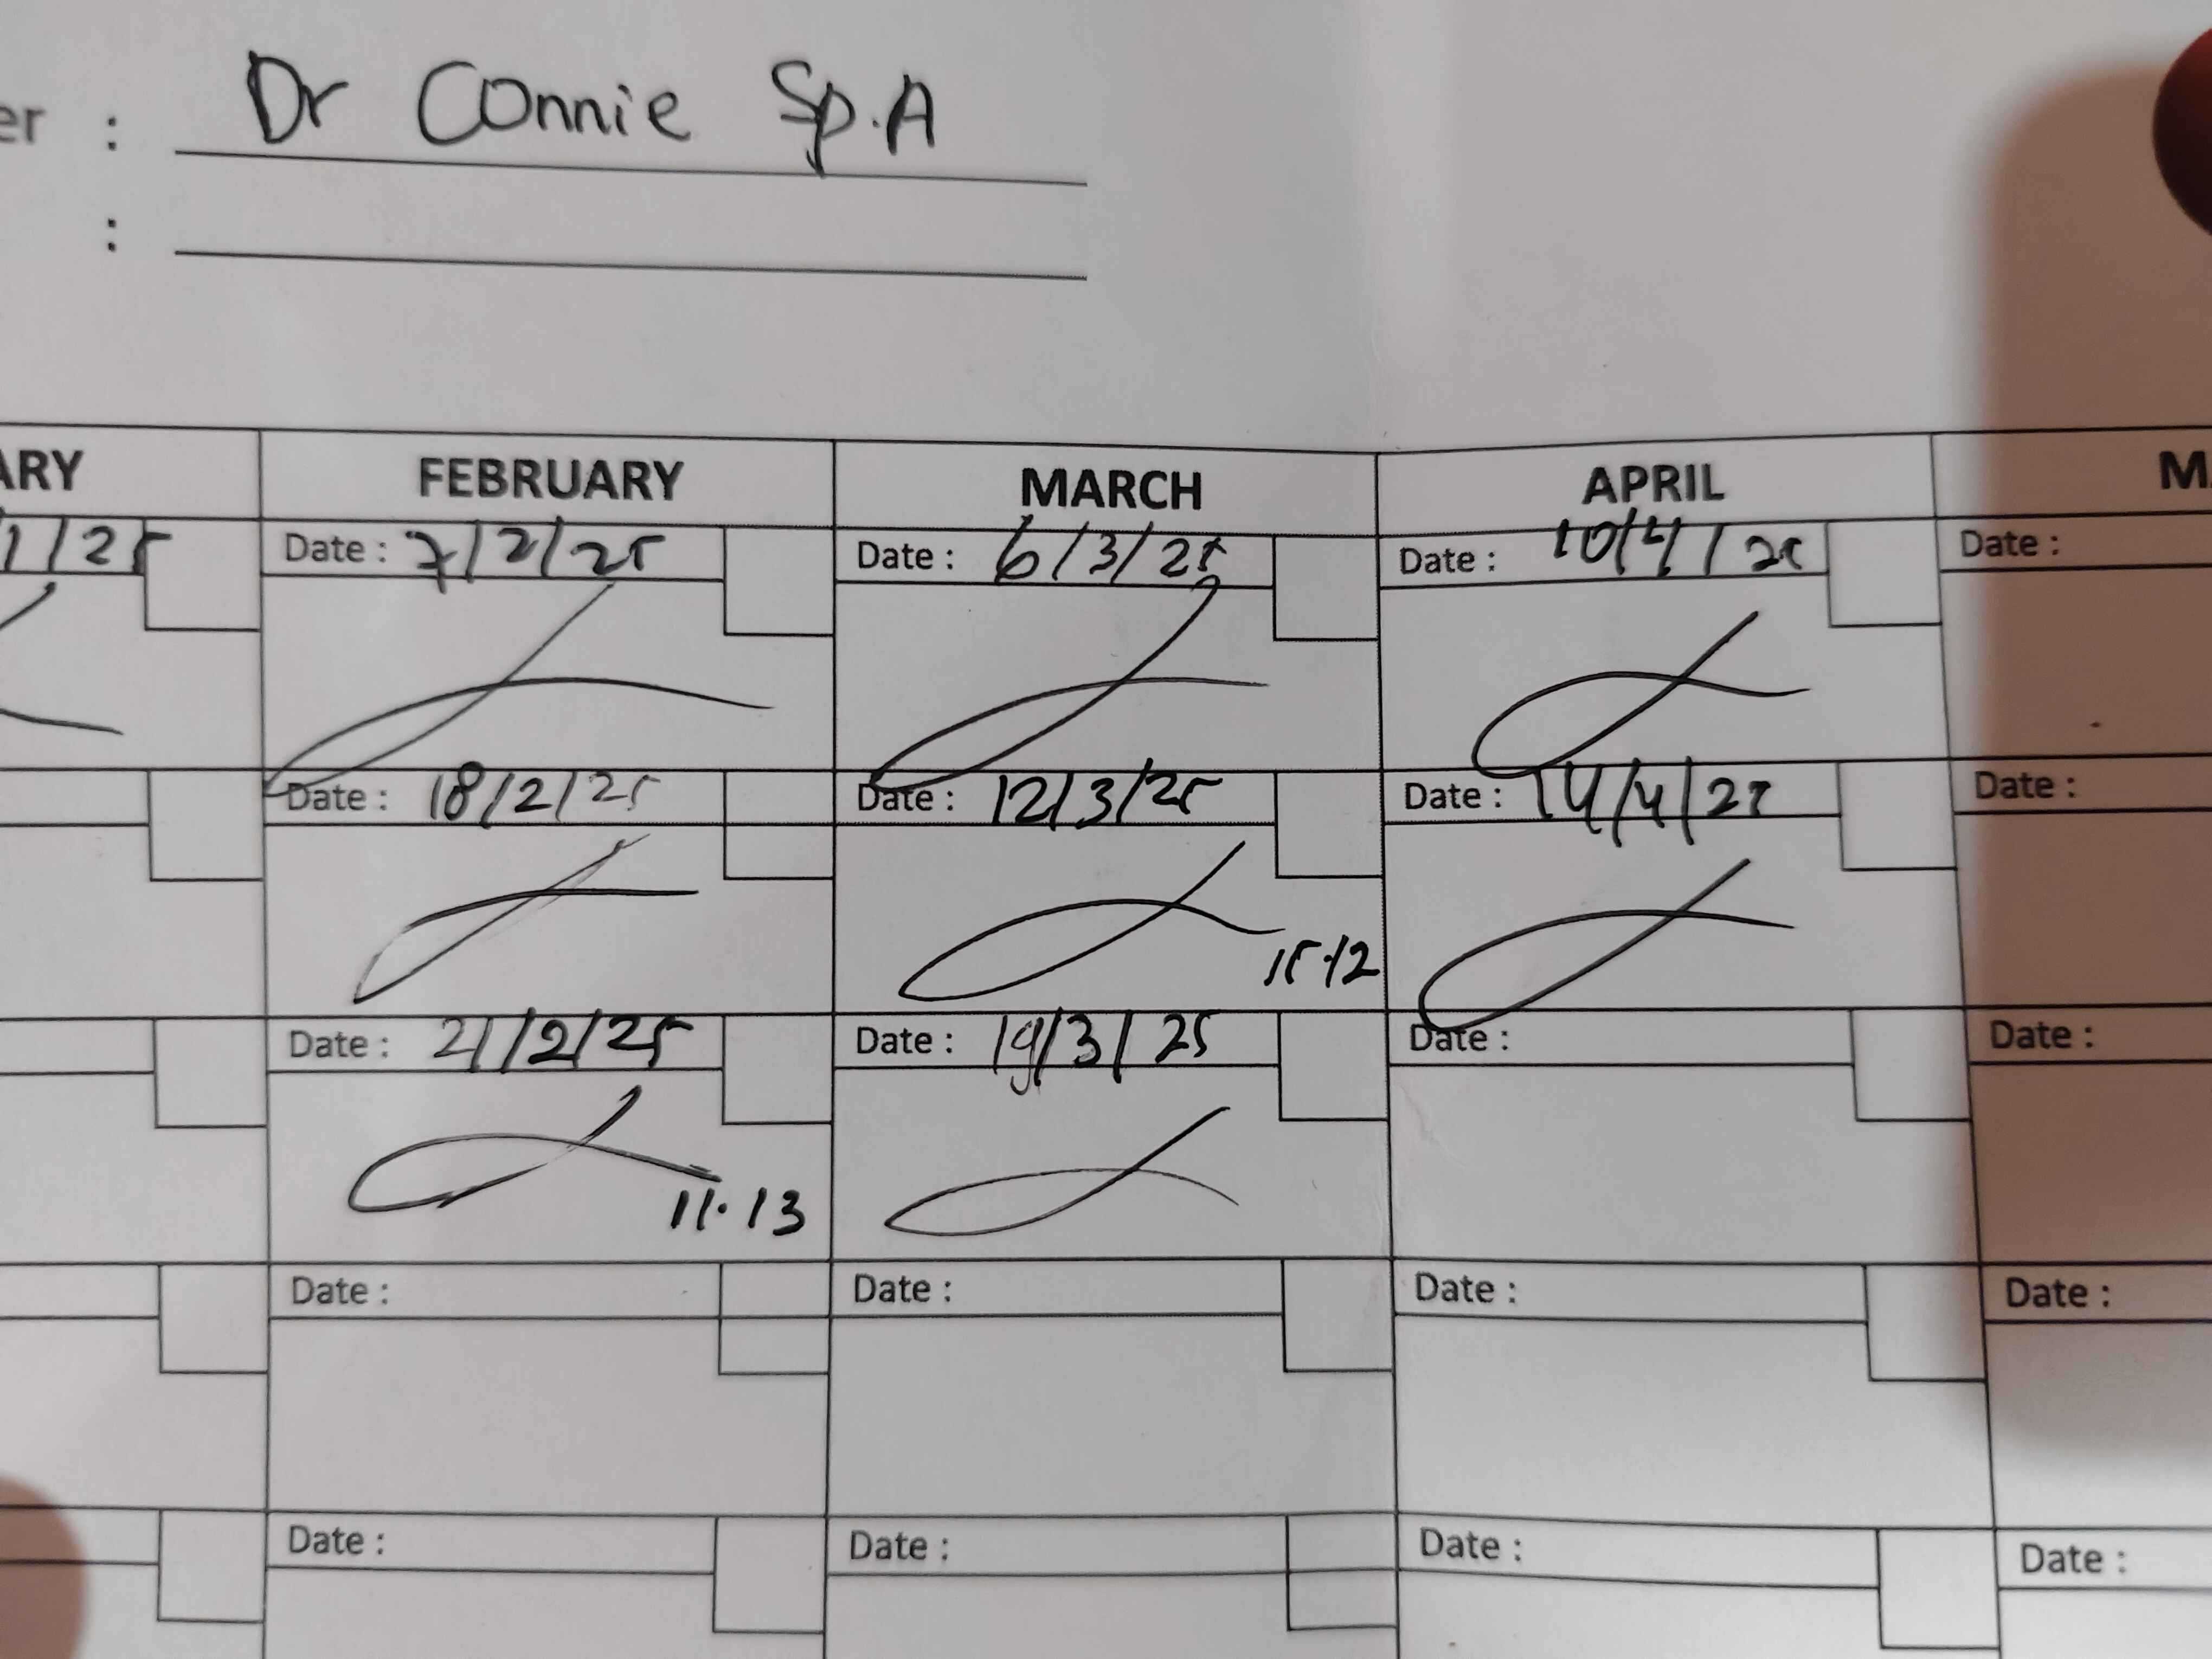 er : Dr Connie Sp.A
:
ARY FEBRUARY MARCH APRIL M
1/25 Date : 7/2/25 Date : 6/3/25 Date : 10/4/25 Date :
Date : 18/2/25 Date : 12/3/25 Date : 14/4/25 Date :
15.12
Date : 21/2/25 Date : 19/3/25 Date : Date :
11.13
Date : Date : Date : Date :
Date : Date : Date : Date :